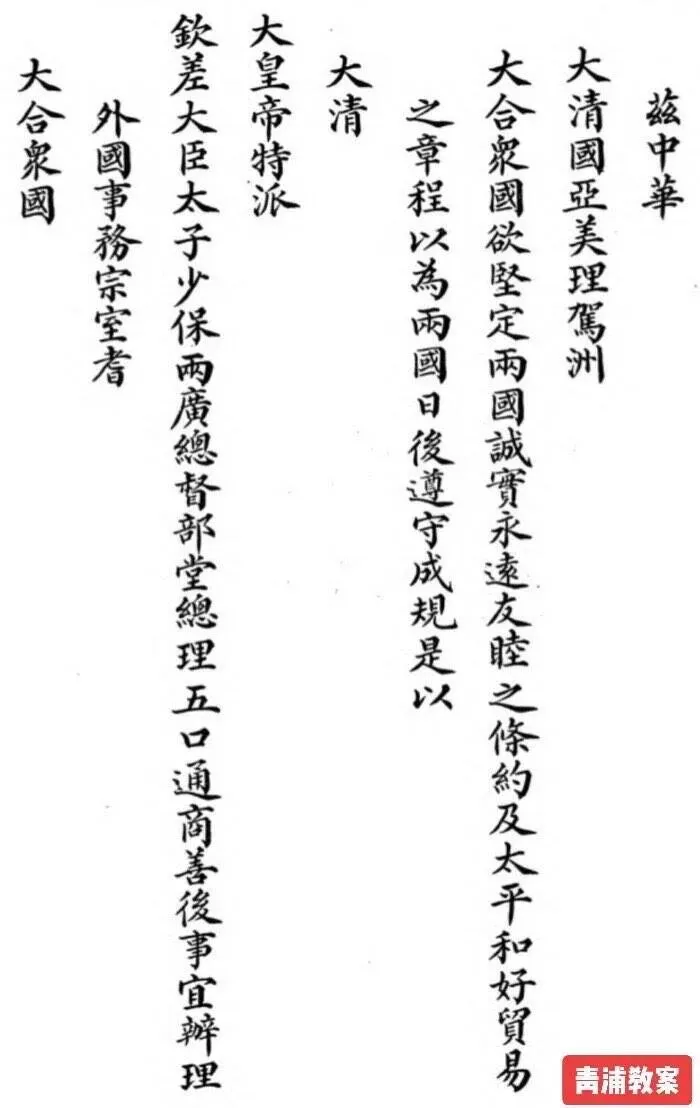 茲中華
大清國亞美理駕洲
大合眾國欲堅定兩國誠實永遠友睦之條約及太平和好貿易
之章程以為兩國日後遵守成規是以
大清
大皇帝特派
欽差大臣太子少保兩廣總督部堂總理五口通商善後事宜辦理
外國事務宗室耆
大合眾國
青浦教案